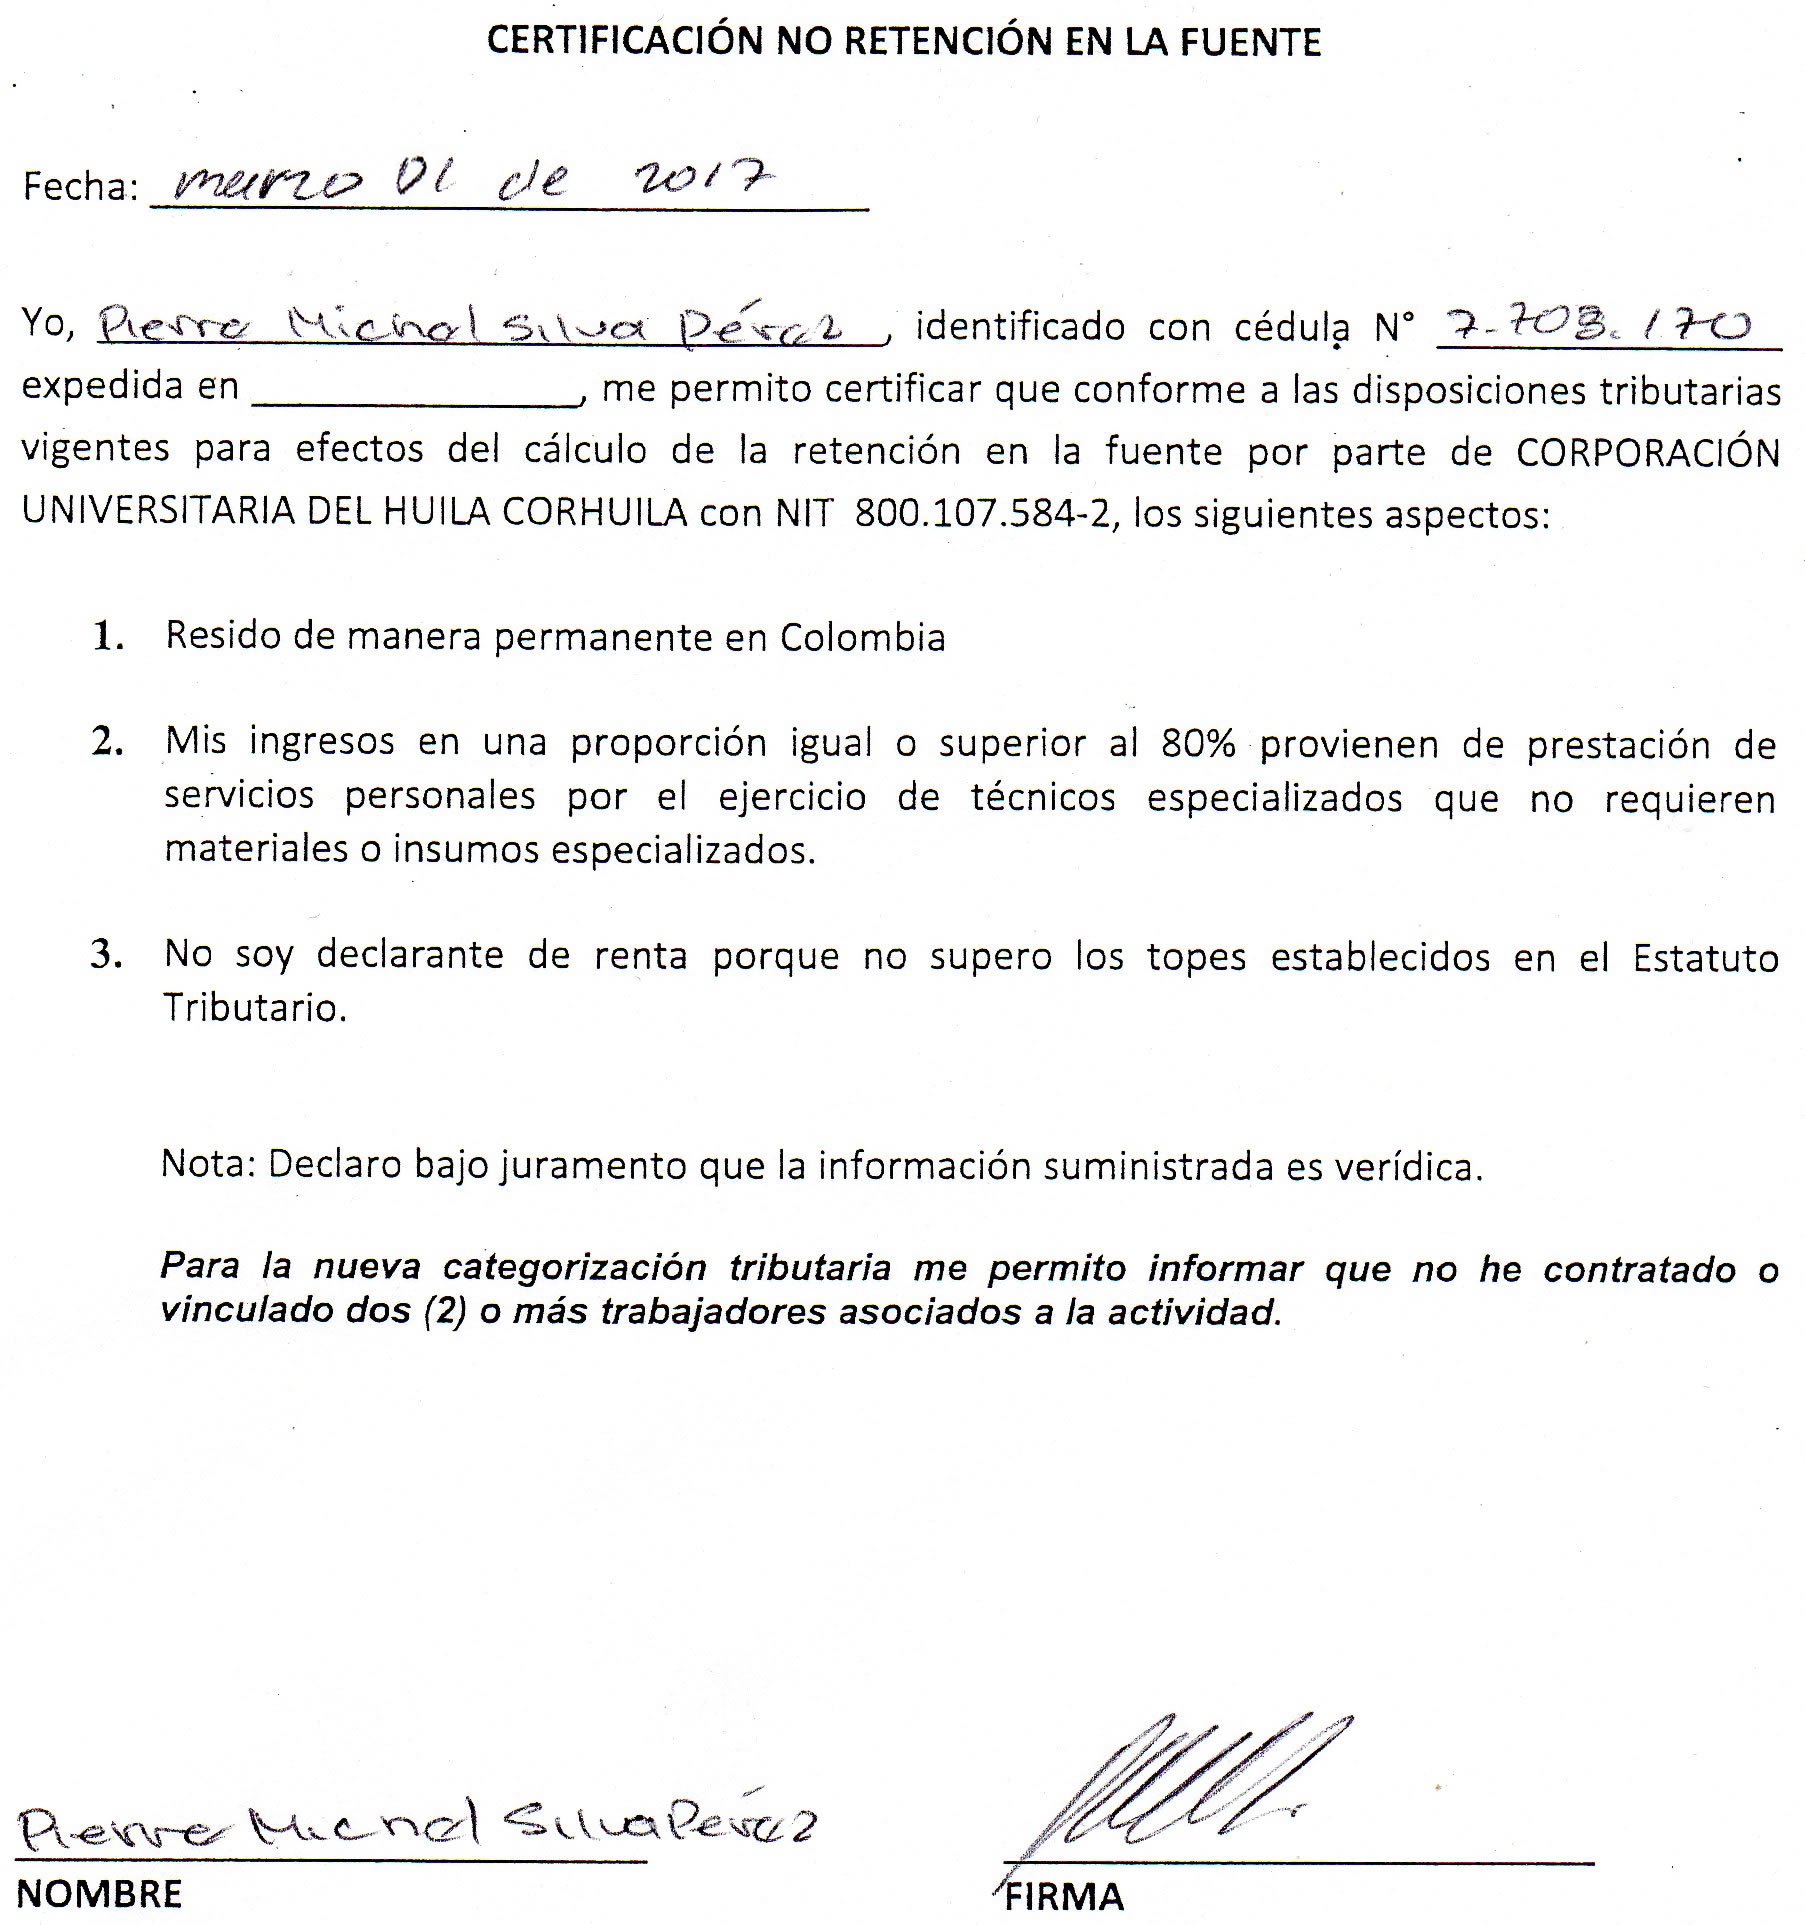 CERTIFICACIÓN NO RETENCIÓN EN LA FUENTE
Fecha: marzo 01 de 2017
Yo, Pierre Michel Silva Pérez, identificado con cédula N° 7.703.170
expedida en ____________, me permito certificar que conforme a las disposiciones tributarias
vigentes para efectos del cálculo de la retención en la fuente por parte de CORPORACIÓN
UNIVERSITARIA DEL HUILA CORHUILA con NIT 800.107.584-2, los siguientes aspectos:
1. Resido de manera permanente en Colombia
2. Mis ingresos en una proporción igual o superior al 80% provienen de prestación de
servicios personales por el ejercicio de técnicos especializados que no requieren
materiales o insumos especializados.
3. No soy declarante de renta porque no supero los topes establecidos en el Estatuto
Tributario.
Nota: Declaro bajo juramento que la información suministrada es verídica.
Para la nueva categorización tributaria me permito informar que no he contratado o
vinculado dos (2) o más trabajadores asociados a la actividad.
Pierre Michel Silva Pérez
NOMBRE FIRMA